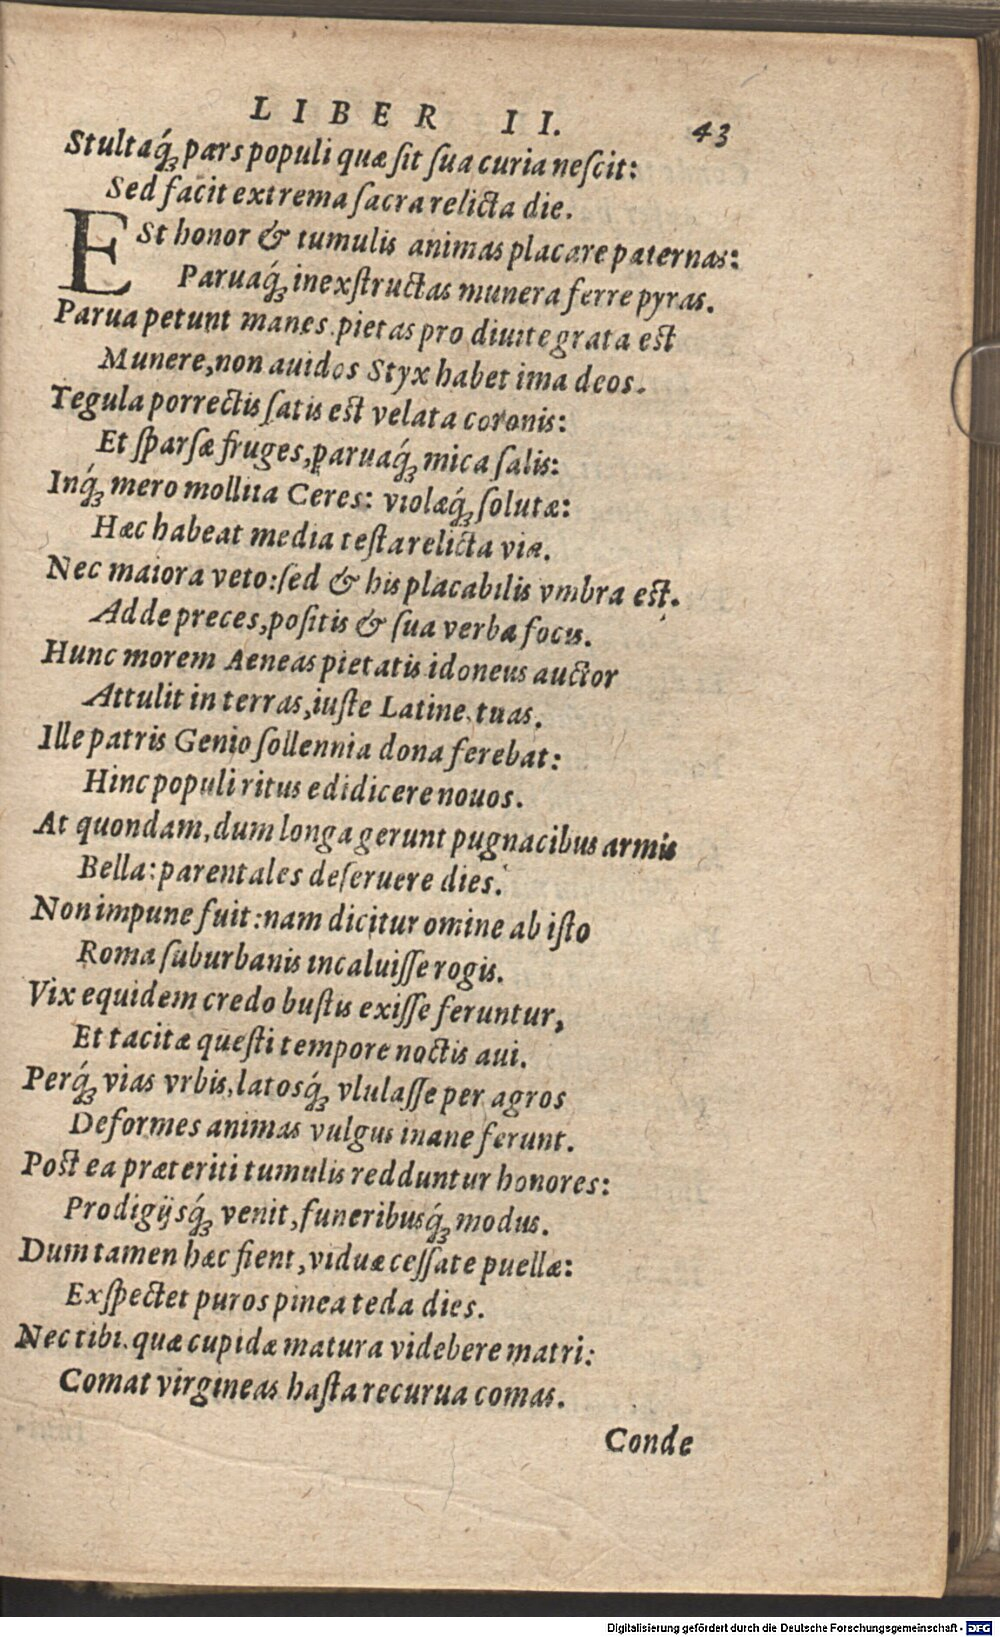 LIBER II. 43
Stultaq́ꝫ pars populi quæ ſit ſua curia neſcit:
Sed facit extrema ſacra relicta die.
ESt honor & tumulis animas placare paternas:
Paruaq́ꝫ inexſtructas munera ferre pyras.
Parua petunt manes. pietas pro diuite grata est
Munere, non auidos Styx habet ima deos.
Tegula porrectis ſatis est velata coronis:
Et ſparſæ fruges, paruaq́ꝫ mica ſalis:
Inq́ꝫ mero mollita Ceres: violæq́ꝫ ſolutæ:
Hæc habeat media teſta relicta via.
Nec maiora veto: ſed & his placabilis vmbra est.
Adde preces, poſitis & ſua verba focis.
Hunc morem Aeneas pietatis idoneus auctor
Attulit in terras, iuſte Latine, tuas.
Ille patris Genio ſollennia dona ferebat:
Hinc populi ritus edidicere nouos.
At quondam, dum longa gerunt pugnacibus armis
Bella: parentales deſeruere dies.
Non impune fuit: nam dicitur omine ab iſto
Roma ſuburbanis incaluiſſe rogis.
Vix equidem credo buſtis exiſſe feruntur,
Et tacitæ queſti tempore noctis aui.
Perq́ꝫ vias vrbis, latosq́ꝫ vlulaſſe per agros
Deformes animas vulgus inane ferunt.
Post ea præteriti tumulis redduntur honores:
Prodigijsq́ꝫ venit, funeribusq́ꝫ modus.
Dum tamen hæc fient, viduæ ceſſate puellæ:
Exſpectet puros pinea teda dies.
Nec tibi. quæ cupidæ matura videbere matri:
Comat virgineas haſta recurua comas.
Conde
Digitalisierung gefördert durch die Deutsche Forschungsgemeinschaft - DFG